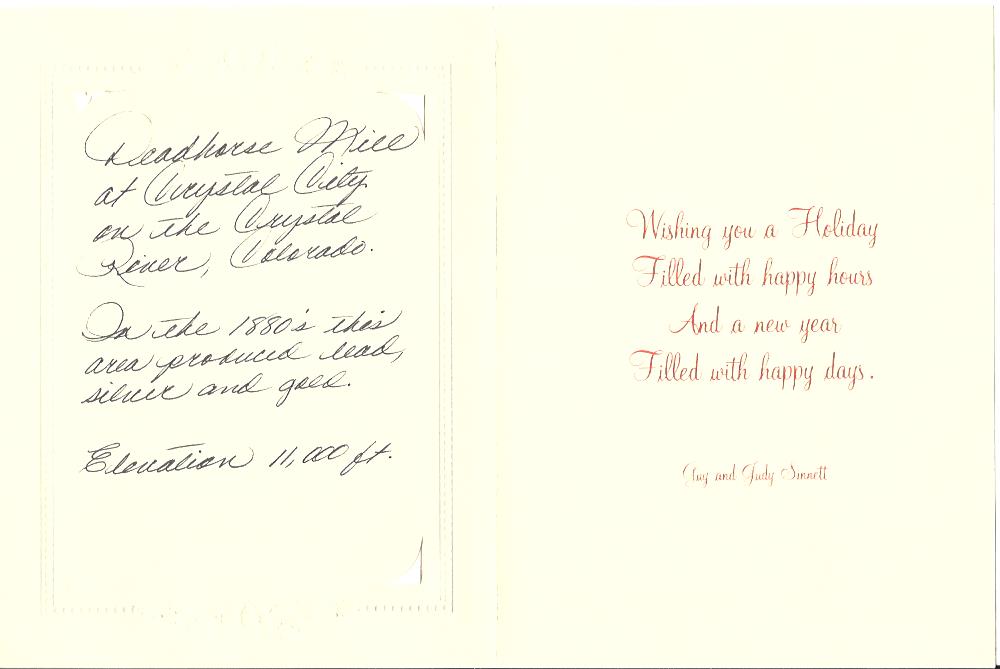 Deadhorse Mill
at Crystal City
on the Crystal
River, Colorado.
In the 1880's this
area produced lead,
silver and gold.
Elevation 11,000 ft.
Wishing you a Holiday
Filled with happy hours
And a new year
Filled with happy days.
Guy and Judy Sinnett